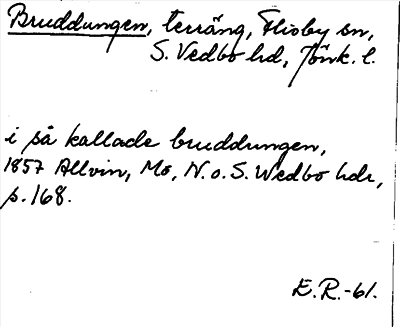 Bruddungen, terräng, Flisby sn,
S. Vedbo hd, Jönk. l.
i så kallade bruddungen,
1857 Allvin, Mo, N. o. S. Wedbo hdr,
p. 168.
E.R.-61.